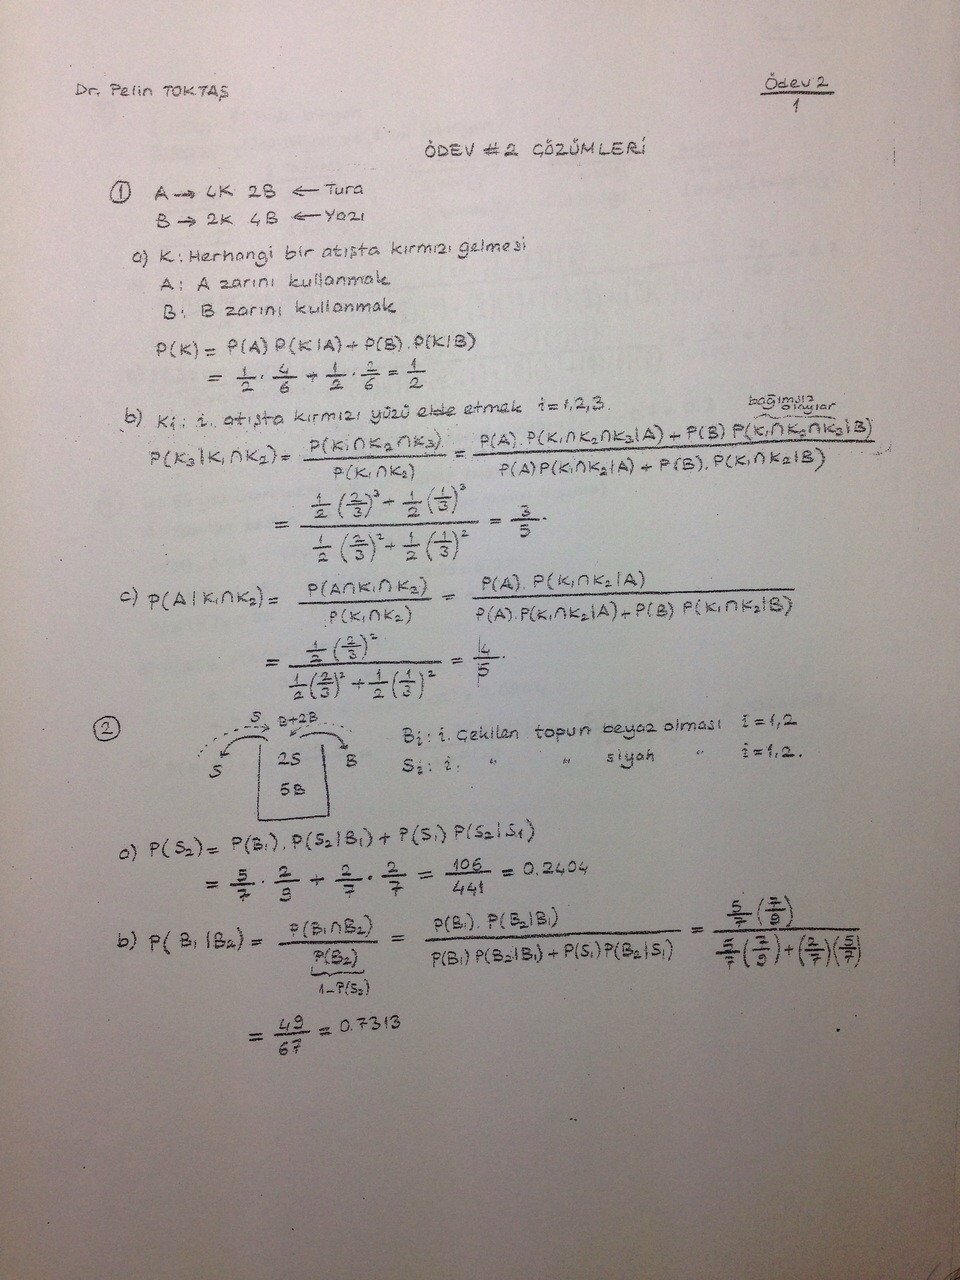 Dr. Pelin TOKTAŞ
Ödev 2
1
ÖDEV #2 ÇÖZÜMLERİ
① A → 4K 2B ← Tura
B → 2K 4B ← Yazı
a) K: Herhangi bir atışta kırmızı gelmesi
A: A zarını kullanmak
B: B zarını kullanmak
P(K) = P(A) P(K|A) + P(B). P(K|B)
= 1/2 . 4/6 + 1/2 . 2/6 = 1/2
b) Ki: i. atışta kırmızı yüzü elde etmek i=1,2,3.
bağımsız olaylar
P(K₃|K₁∩K₂) = P(K₁∩K₂∩K₃) / P(K₁∩K₂) = P(A). P(K₁∩K₂∩K₃|A) + P(B) P(K₁∩K₂∩K₃|B) / P(A) P(K₁∩K₂|A) + P(B). P(K₁∩K₂|B)
= 1/2 (2/3)³ + 1/2 (1/3)³ / 1/2 (2/3)² + 1/2 (1/3)² = 3/5.
c) P(A|K₁∩K₂) = P(A∩K₁∩K₂) / P(K₁∩K₂) = P(A). P(K₁∩K₂|A) / P(A). P(K₁∩K₂|A) + P(B) P(K₁∩K₂|B)
= 1/2 (2/3)² / 1/2 (2/3)² + 1/2 (1/3)² = 4/5.
② S B+2B
S 2S B
5B
Bi: i. çekilen topun beyaz olması i=1,2
Si: i. " " siyah " i=1,2.
a) P(S₂) = P(B₁). P(S₂|B₁) + P(S₁) P(S₂|S₁)
= 5/7 . 2/9 + 2/7 . 2/7 = 106/441 = 0.2404
b) P(B₁|B₂) = P(B₁∩B₂) / P(B₂) = P(B₁). P(B₂|B₁) / P(B₁) P(B₂|B₁) + P(S₁) P(B₂|S₁) = 5/7 (7/9) / 5/7 (7/9) + (2/7)(5/7)
1-P(S₂)
= 49/67 = 0.7313